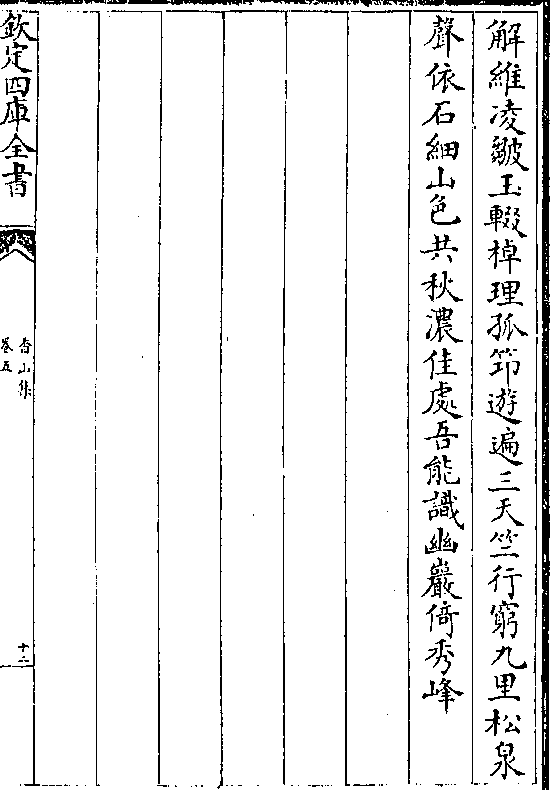 解維凌皺玉輟棹理孤筇遊遍三天竺行窮九里松泉
聲依石細山色共秋濃佳處吾能識幽巖倚秀峰
欽定四庫全書
香山集
卷五
十二